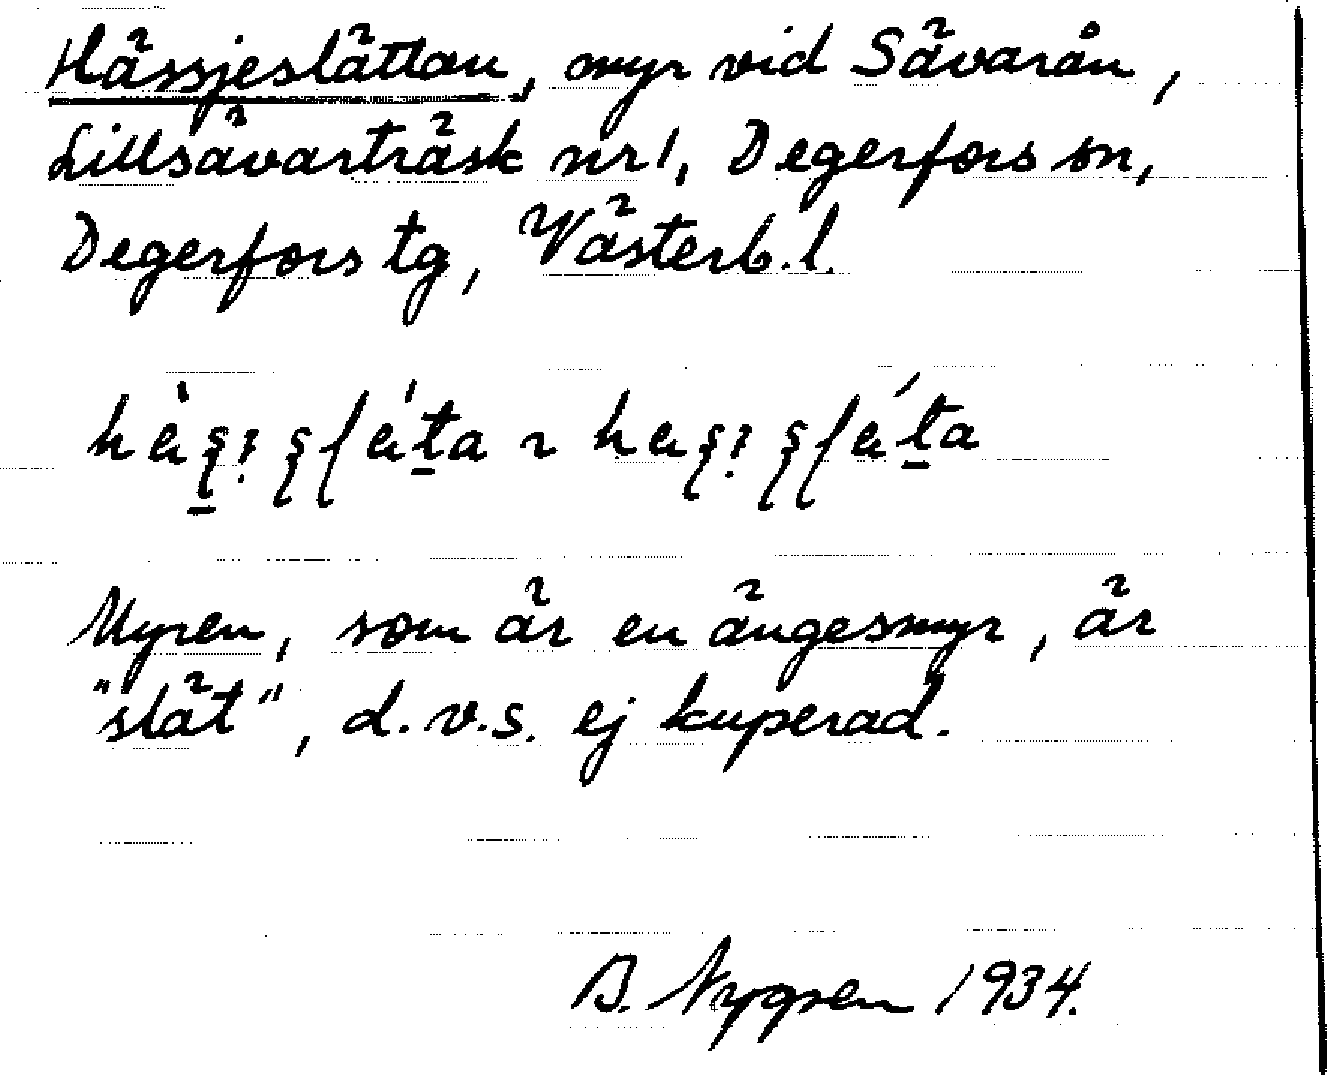 Hässjeslättan, myr vid Sävarån,
Lillsävarträsk nr 1, Degerfors sn,
Degerfors tg, Västerb. l.
Myren, som är en ängesmyr, är
"slät", d.v.s. ej kuperad.
B. Nygren 1934.